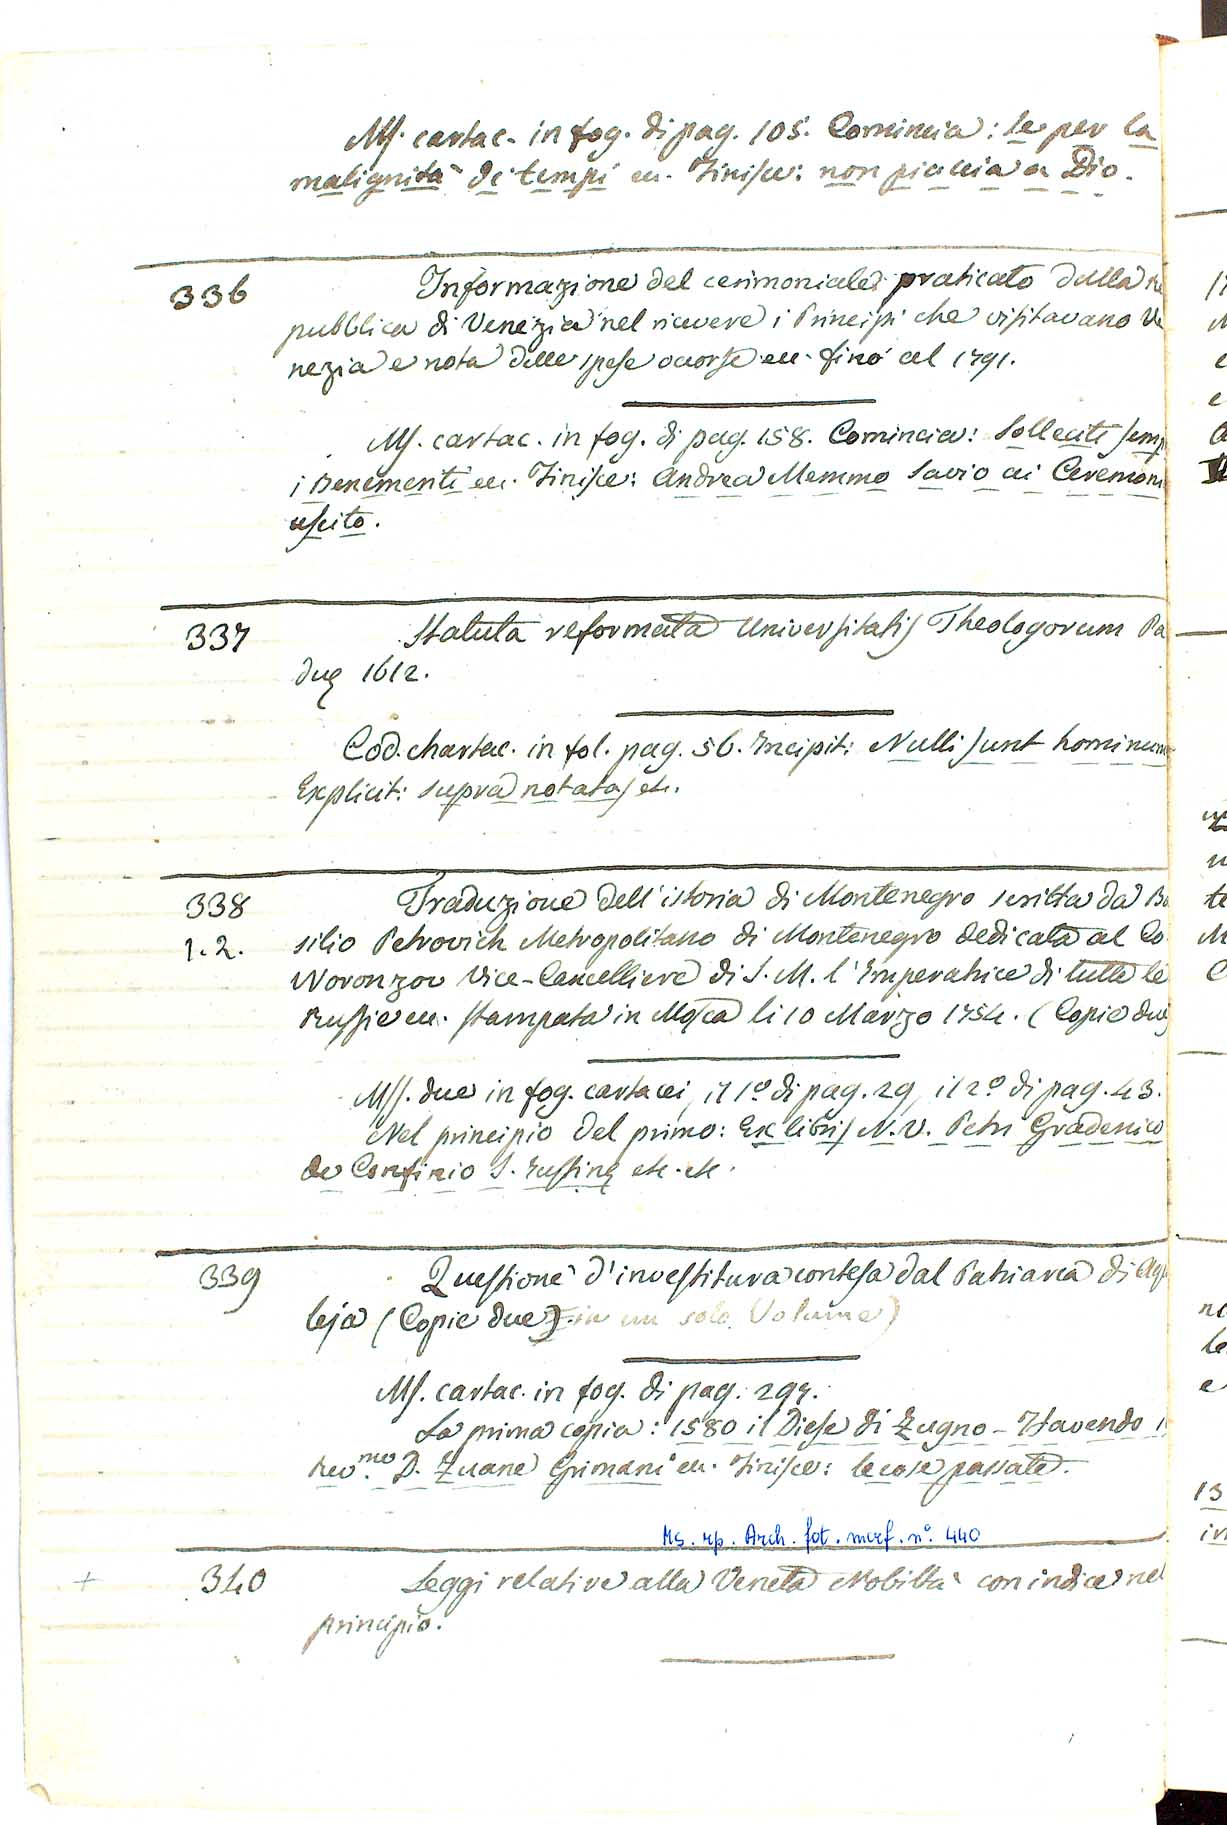 Ms. cartac. in fog. di pag. 105. Comincia: Se per la
malignità de' tempi ec. Finisce: non piaccia a Dio.
336 Informazione del cerimoniale praticato dalla Re
pubblica di Venezia nel ricevere i Principi che visitavano Ve
nezia e nota delle spese occorse ec. fino al 1791.
Ms. cartac. in fog. di pag. 158. Comincia: Solleciti semp
i Benemeriti ec. Finisce: Andrea Memmo Savio ai Ceremoni
uscito.
337 Statuta reformata Universitatis Theologorum Pa
duę 1612.
Cod. chartac. in fol. pag. 56. Incipit: Nulli sunt hominum
Explicit: supra notatas etc.
338 Traduzione dell'istoria di Montenegro scritta da Ba
1. 2. silio Petrovich Metropolitano di Montenegro dedicata al Co.
Woronzov Vice-Cancelliere di S. M. l'Imperatrice di tutte le
Russie ec. stampata in Mosca li 10 Marzo 1754. (Copie due
Mss. due in fog. cartacei, il 1.º di pag. 29, il 2.º di pag. 43.
Nel principio del primo: Ex libris N. V. Petri Gradenico
de Confinio S. Justinę etc. etc.
339 Questione d'investitura contesa dal Patriarca di Aqu
leja (Copie due) in un solo Volume)
Ms. cartac. in fog. di pag. 297.
La prima copia: 1580 il Diese di Zugno - Havendo
Rev.mo D. Zuane Grimani ec. Finisce: le cose passate.
Ms. rip. Arch. fot. marf. nº. 440
+ 340 Leggi relative alla Veneta Nobiltà con indice nel
principio.